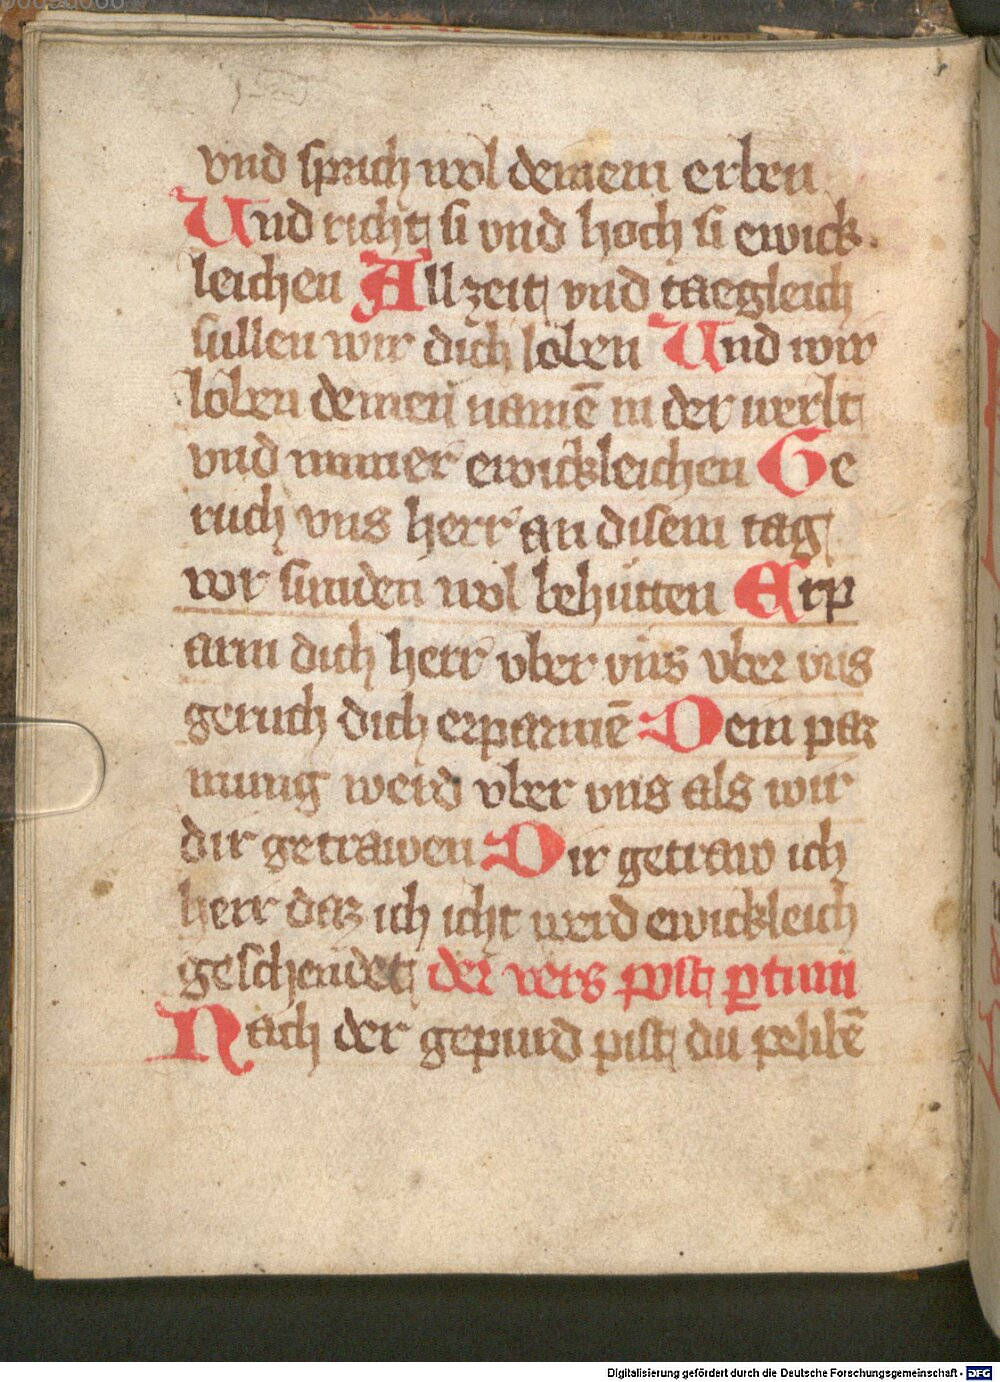 vnd sprich wol deinem erben
Und richt si vnd hoch si ewick
leichen Allzeit vnd taegleich
sullen wir dich loben Und wir
loben deinen namē in der werlt
vnd immer ewickleichen Ge
ruch vns herr an disem tag
vor sunden wol behütten Erp
arm dich herr vber vns vber vns
geruch dich erparmē Dein par
mung werd vber vns als wir
dir getrawen Dir getraw ich
herr daz ich icht werd ewickleich
geschendet der vers post ꝑtum
Nach der gepurd pist du pelibē
Digitalisierung gefördert durch die Deutsche Forschungsgemeinschaft - DFG